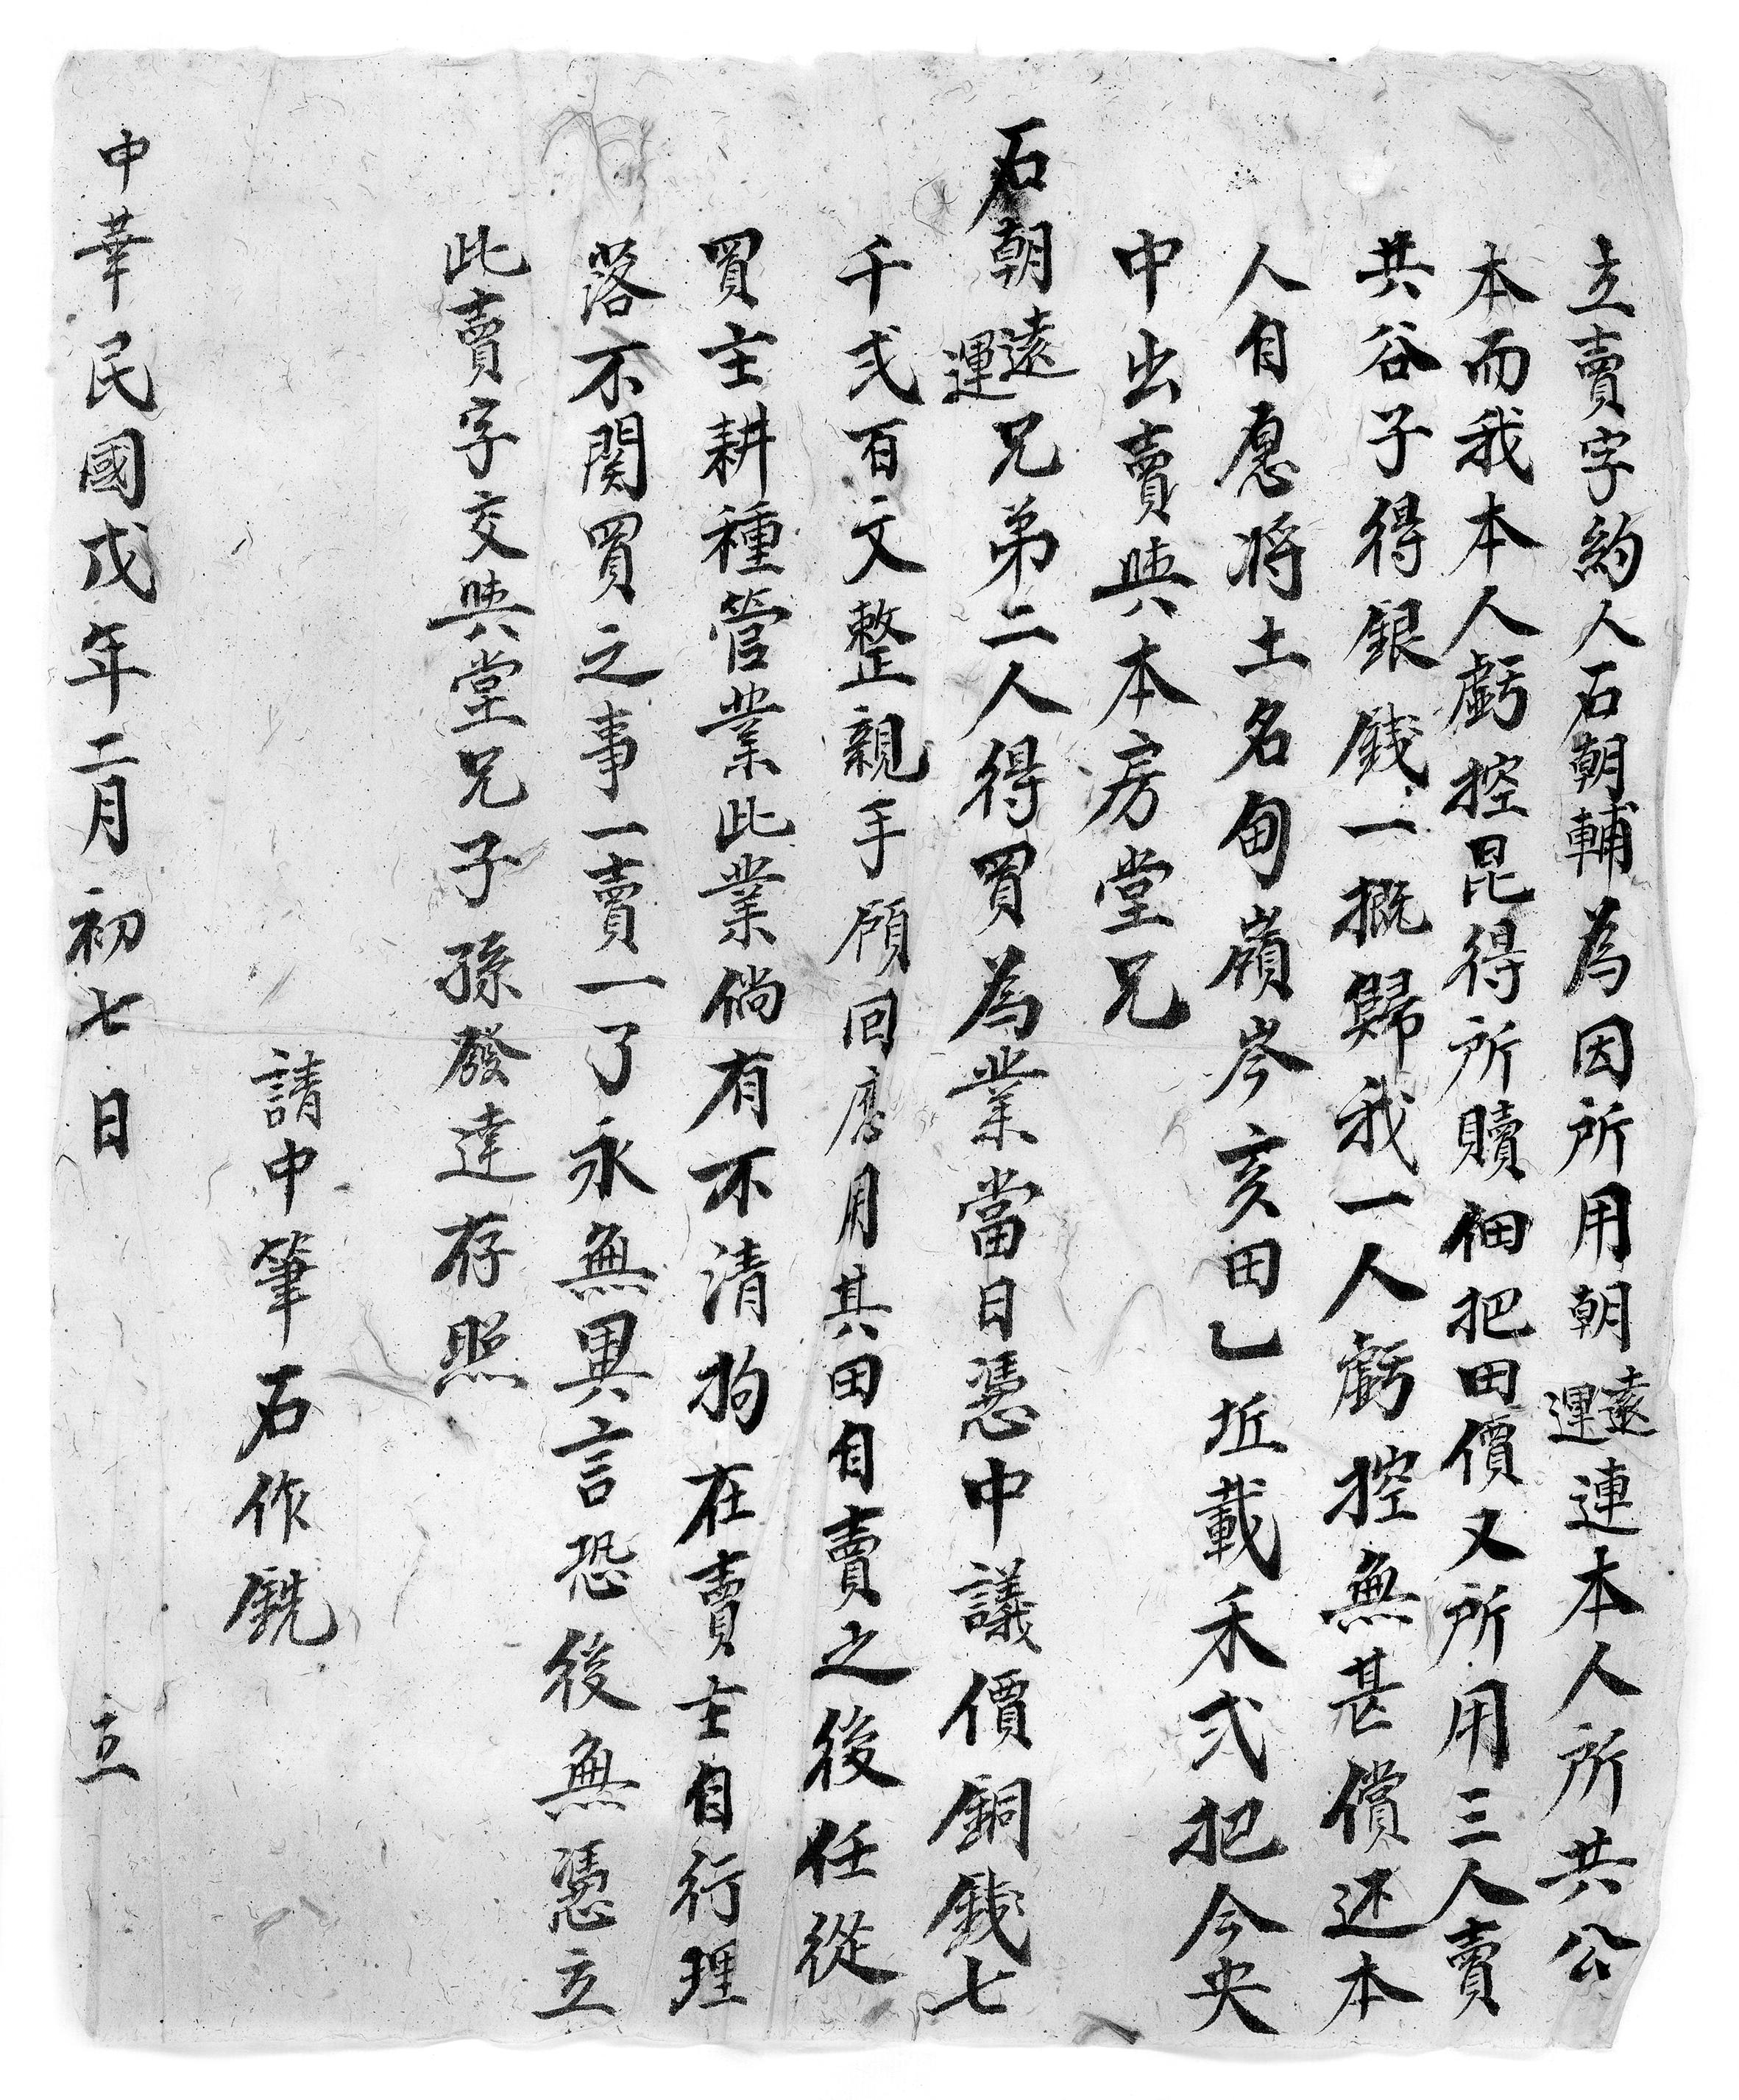 立賣字約人石朝輔為因所用朝遠運連本人所共公
本而我本人虧控昆得所贖佃把田價又所用三人賣
共谷子得銀錢一概歸我一人虧控無甚償还本
人自愿将土名甸嶺岑亥田乚坵載禾弍把今央
中出賣與本房堂兄
石朝遠運兄弟二人得買為業當日憑中議價銅錢七
千弍百文整親手領回應用其田自賣之後任從
買主耕種管業此業倘有不清拘在賣主自行理
落不関買之事一賣一了永無異言恐後無憑立
此賣字交與堂兄子孫發達存照
請中筆石作銑
中華民國戊年二月初七日 立